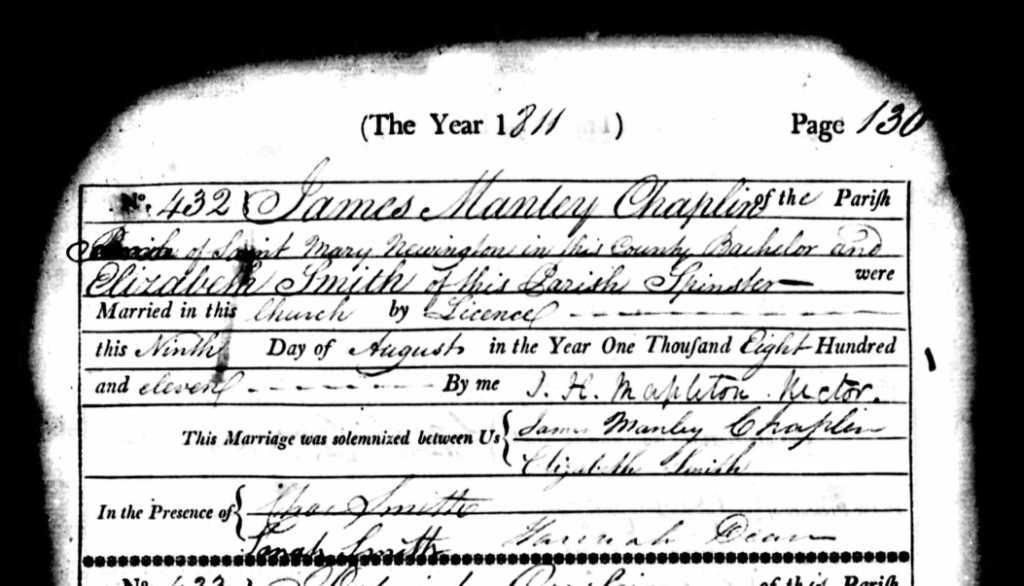 (The Year 1811 ) Page 130
No. 432 } James Manley Chaplin of the Pariſh
of Saint Mary Newington in this County Bachelor and
Elizabeth Smith of this Parish Spinster — were
Married in this Church by Licence
this Ninth Day of August in the Year One Thouſand Eight Hundred
and eleven By me J. H. Mapleton Rector.
This Marriage was solemnized between Us { James Manley Chaplin
Elizabeth Smith
In the Presence of { Chas Smith
Sarah Smith Hannah Dean
No. 433 } of this Pariſh